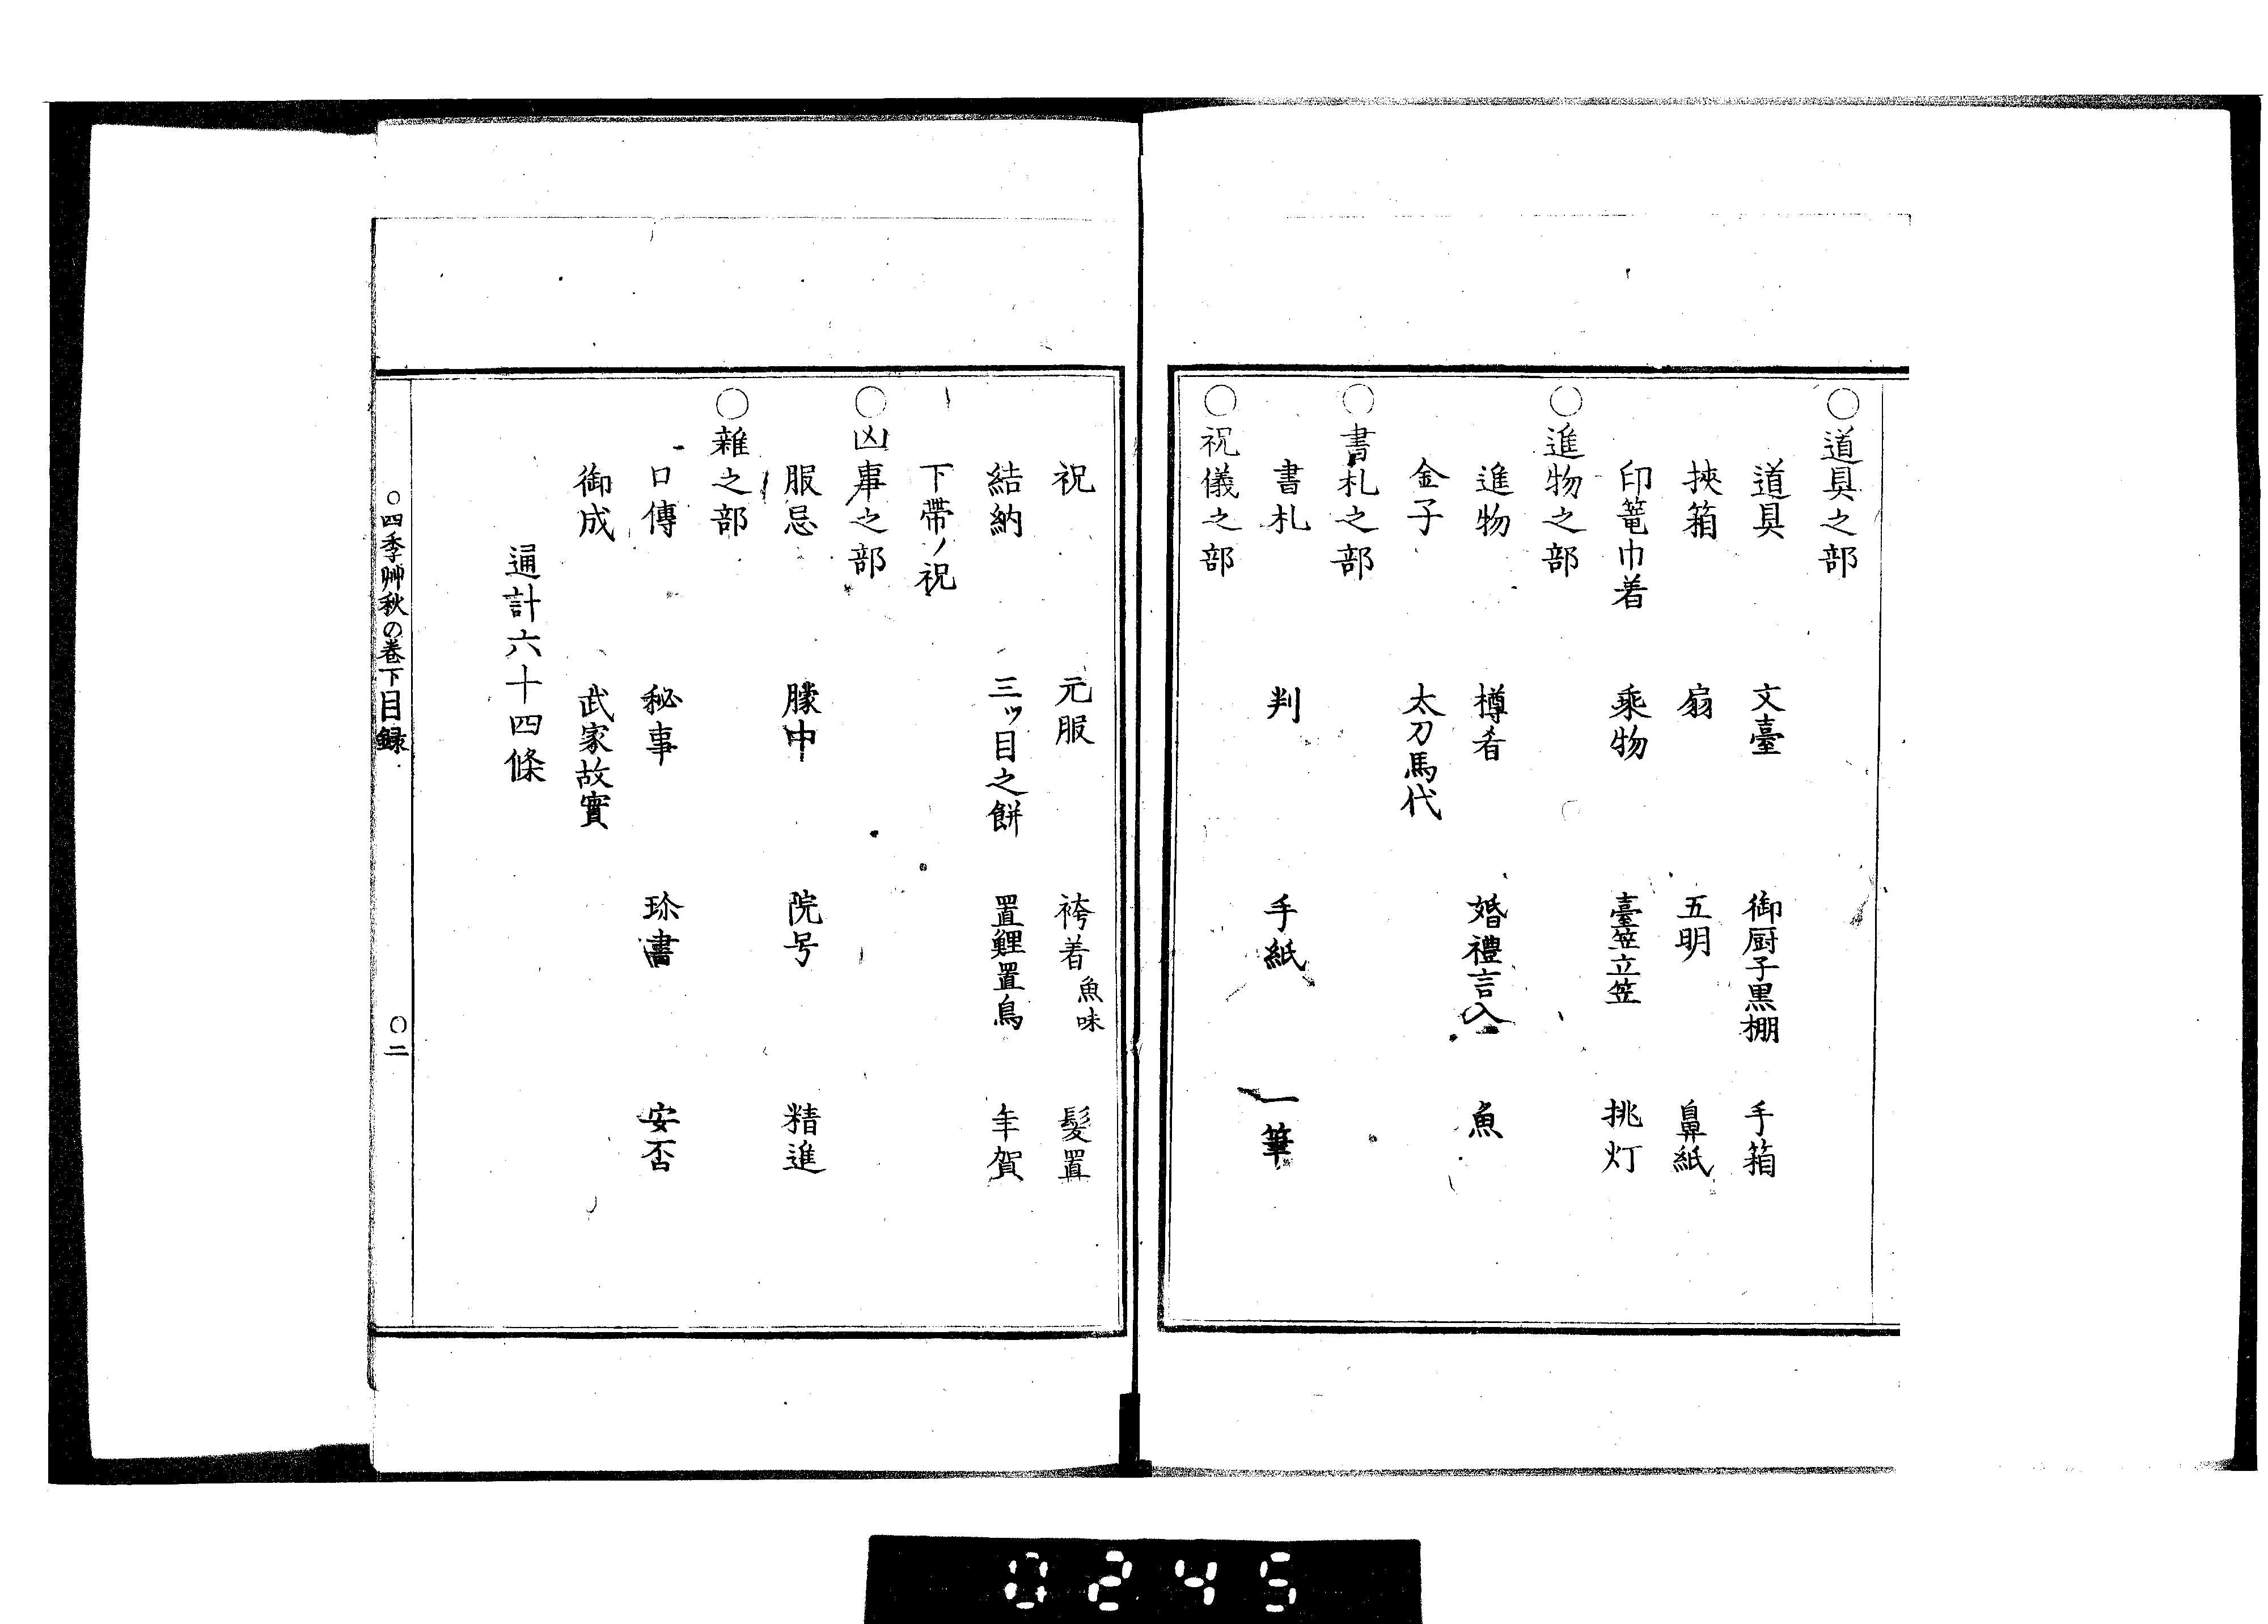 ○道具之部
道具　文臺　御厨子黒棚　手箱
挾箱　扇　五明　鼻紙
印篭巾着　乘物　臺笠立笠　挑灯
○進物之部
進物　樽肴　婚禮言入　魚
金子　太刀馬代
○書札之部
書札　判　手紙　一筆
○祝儀之部
祝　元服　袴着魚味　髮置
結納　三ッ目之餅　置鯉置鳥　年賀
下帶ノ祝
○凶事之部
服忌　朦中　院号　精進
○雜之部
口傳　秘事　珎書　安否
御成　武家故實
通計六十四條
○四季艸秋の巻下目録　○二
0245